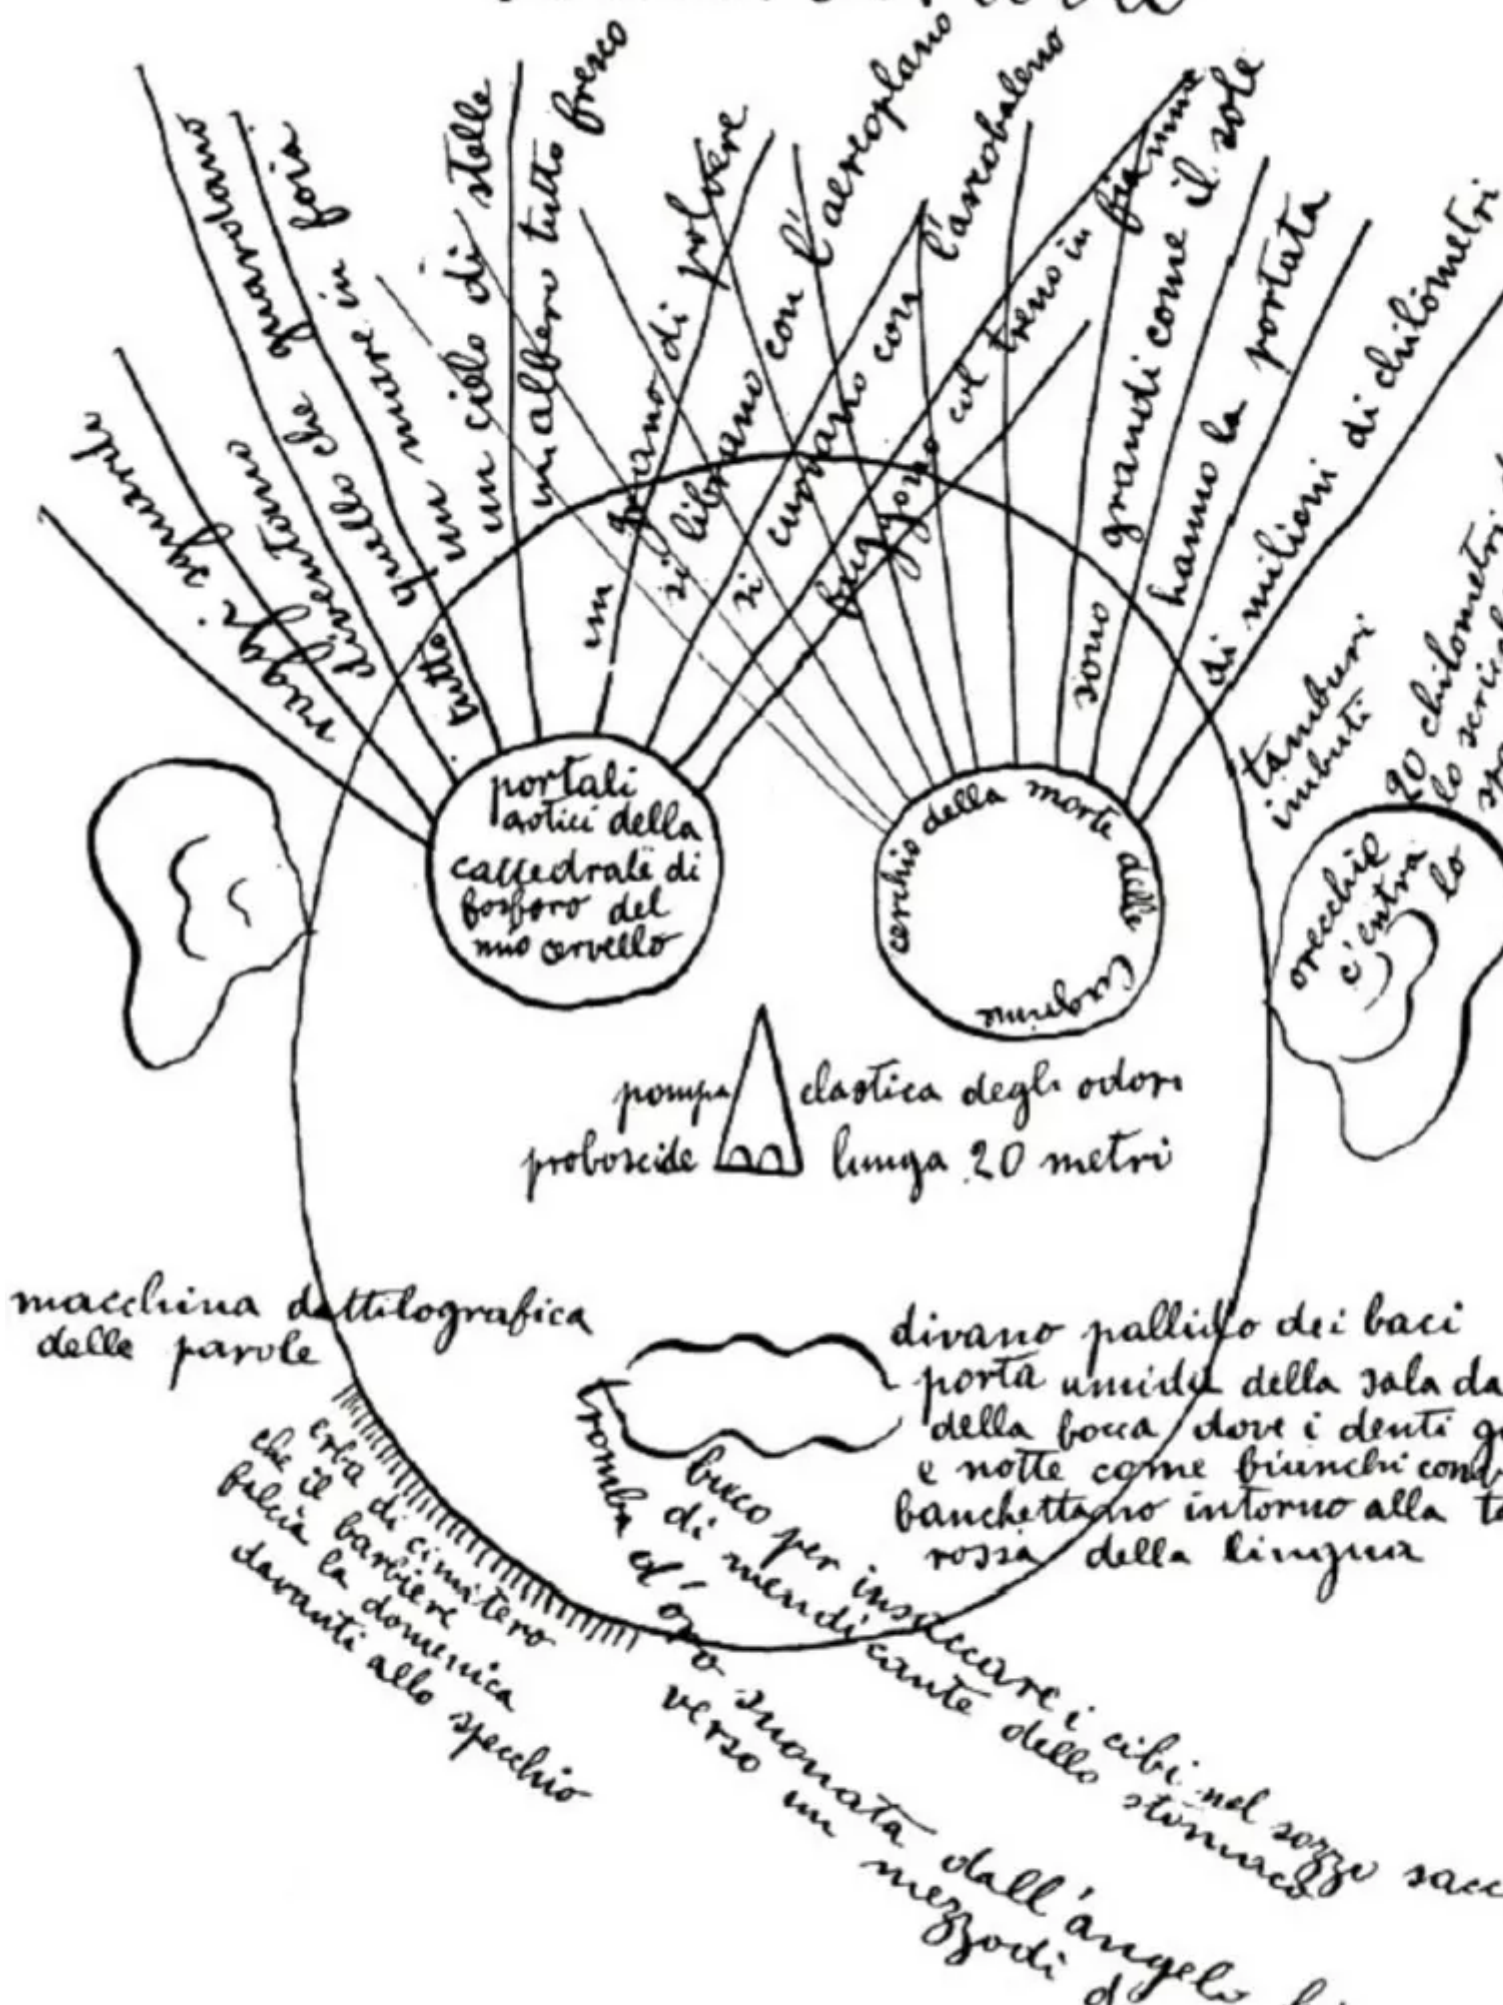 raggi sguardi
diventano
tutto quello che guardano
un mare in foia
un cielo di stelle
un albero tutto fresco
un grano di polvere
si librano con l'aereoplano
si curvano con l'arcobaleno
fuggono col treno in fiamme
sono grandi come il sole
hanno la portata
di milioni di chilometri
tamburi
imbuti
20 chilometri
lo
orecchie
c'entra
lo
portali
gotici della
cattedrale di
fosforo del
mio cervello
cerchio della morte delle
pompa elastica degli odori
proboscide lunga 20 metri
macchina dattilografica
delle parole
divano pallido dei baci
porta umida della sala da
della bocca dove i denti
e notte come bianchi
banchettano intorno alla
rossa della lingua
erba di cimitero
che il barbiere
falcia la domenica
davanti allo specchio
buco per insaccare i cibi nel sozzo
di mendicante dello stomaco
tromba d'oro suonata dall'angelo
verso un mezzodì